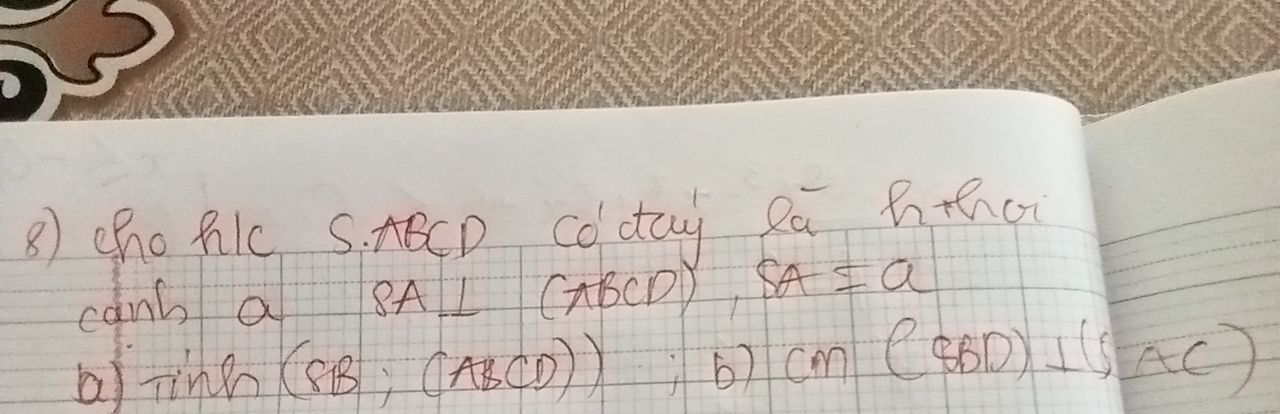 8) cho h/c S.ABCD có đáy là h.thoi
cạnh a SA ⊥ (ABCD), SA = a
a) Tính (SB; (ABCD)) ; b) cm (SBD) ⊥ (SAC)